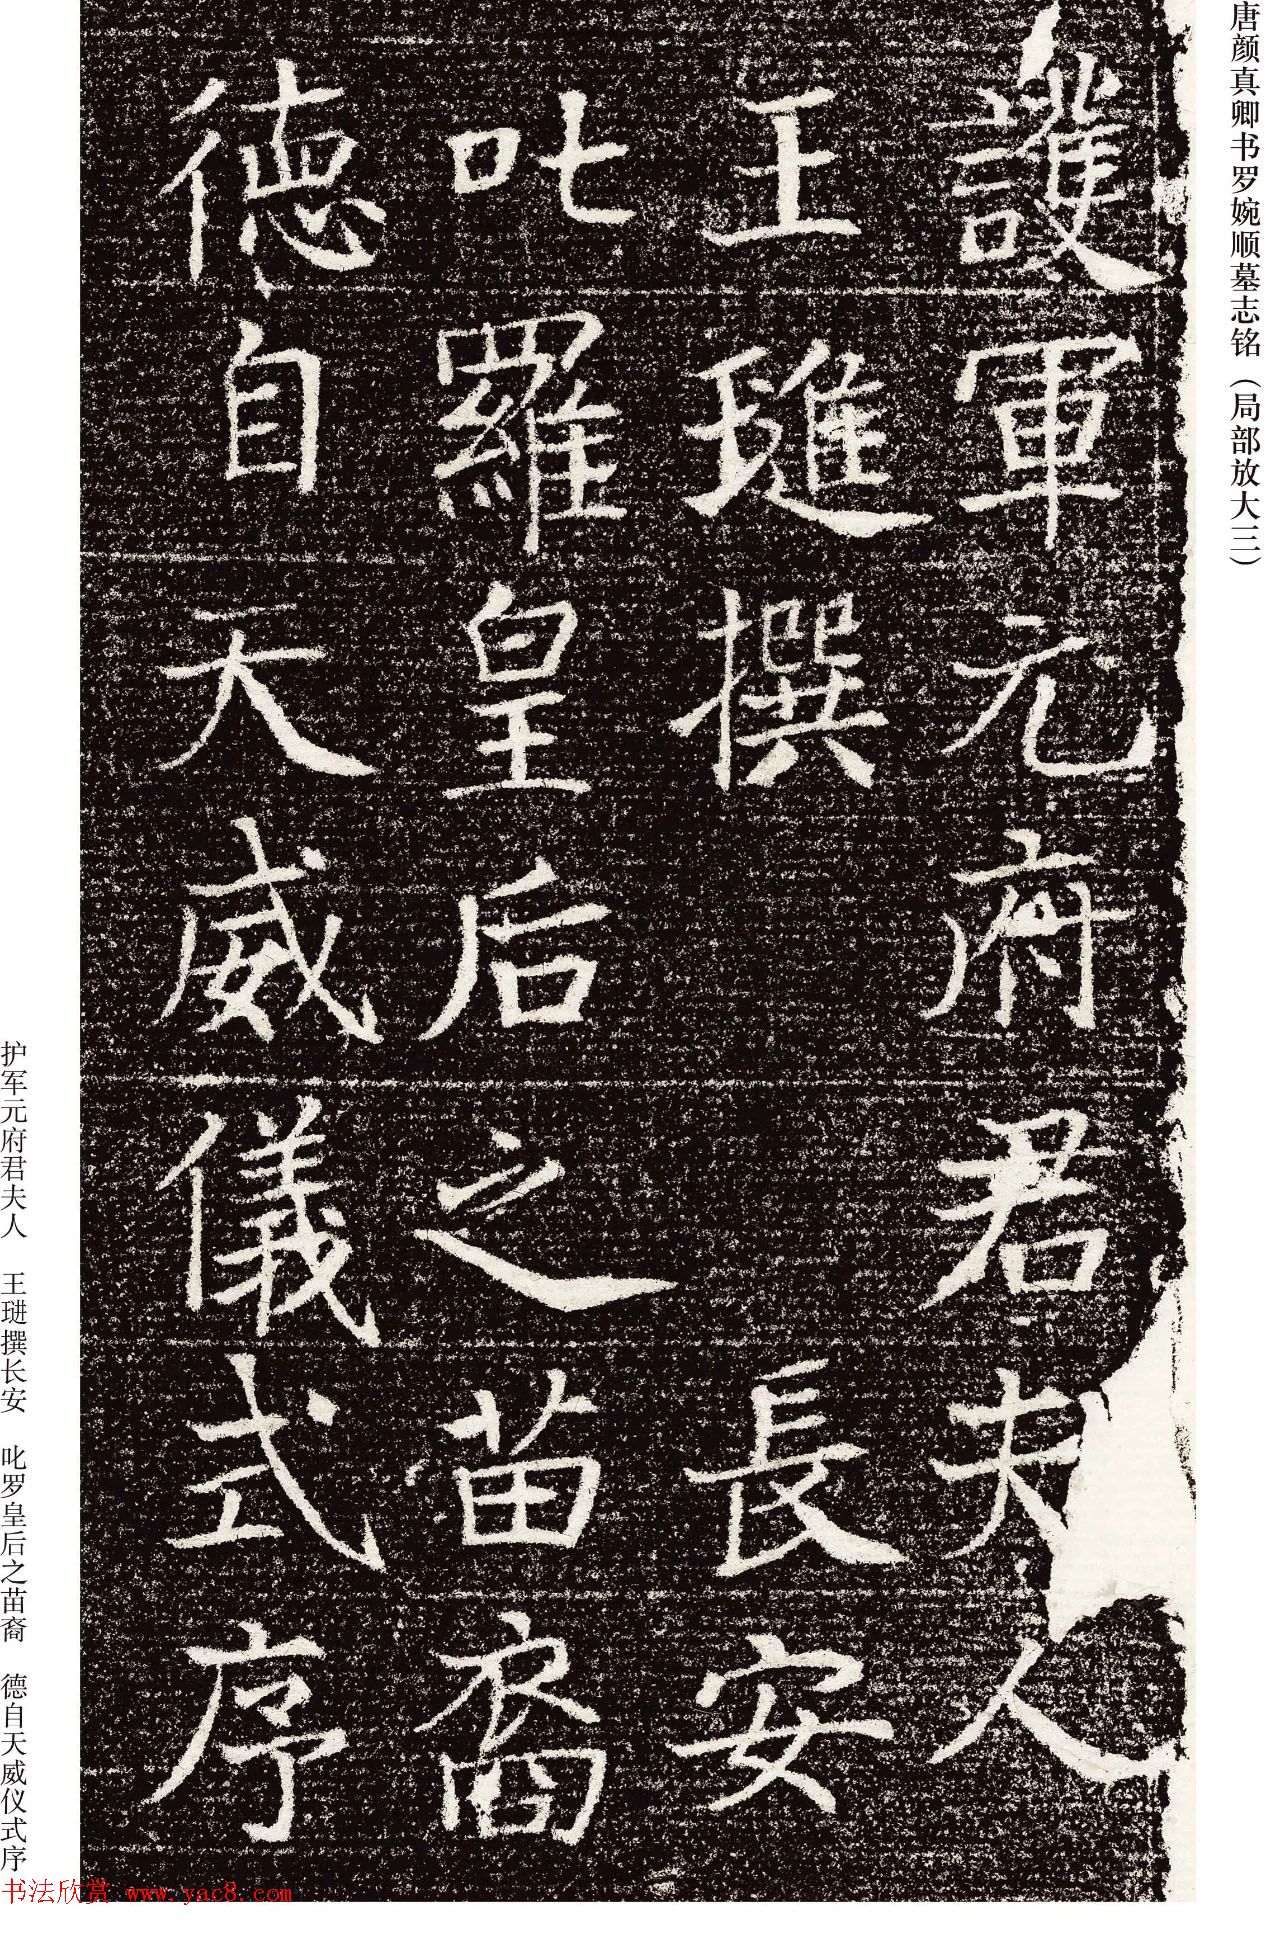 唐颜真卿书罗婉顺墓志铭（局部放大三）
護軍元府君夫人
王璡撰長安
叱羅皇后之苗裔
德自天威儀式序
护军元府君夫人 王琎撰长安 叱罗皇后之苗裔 德自天威仪式序
书法欣赏 www.yac8.com